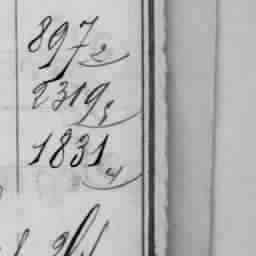 897 2
2319 3
1831 4